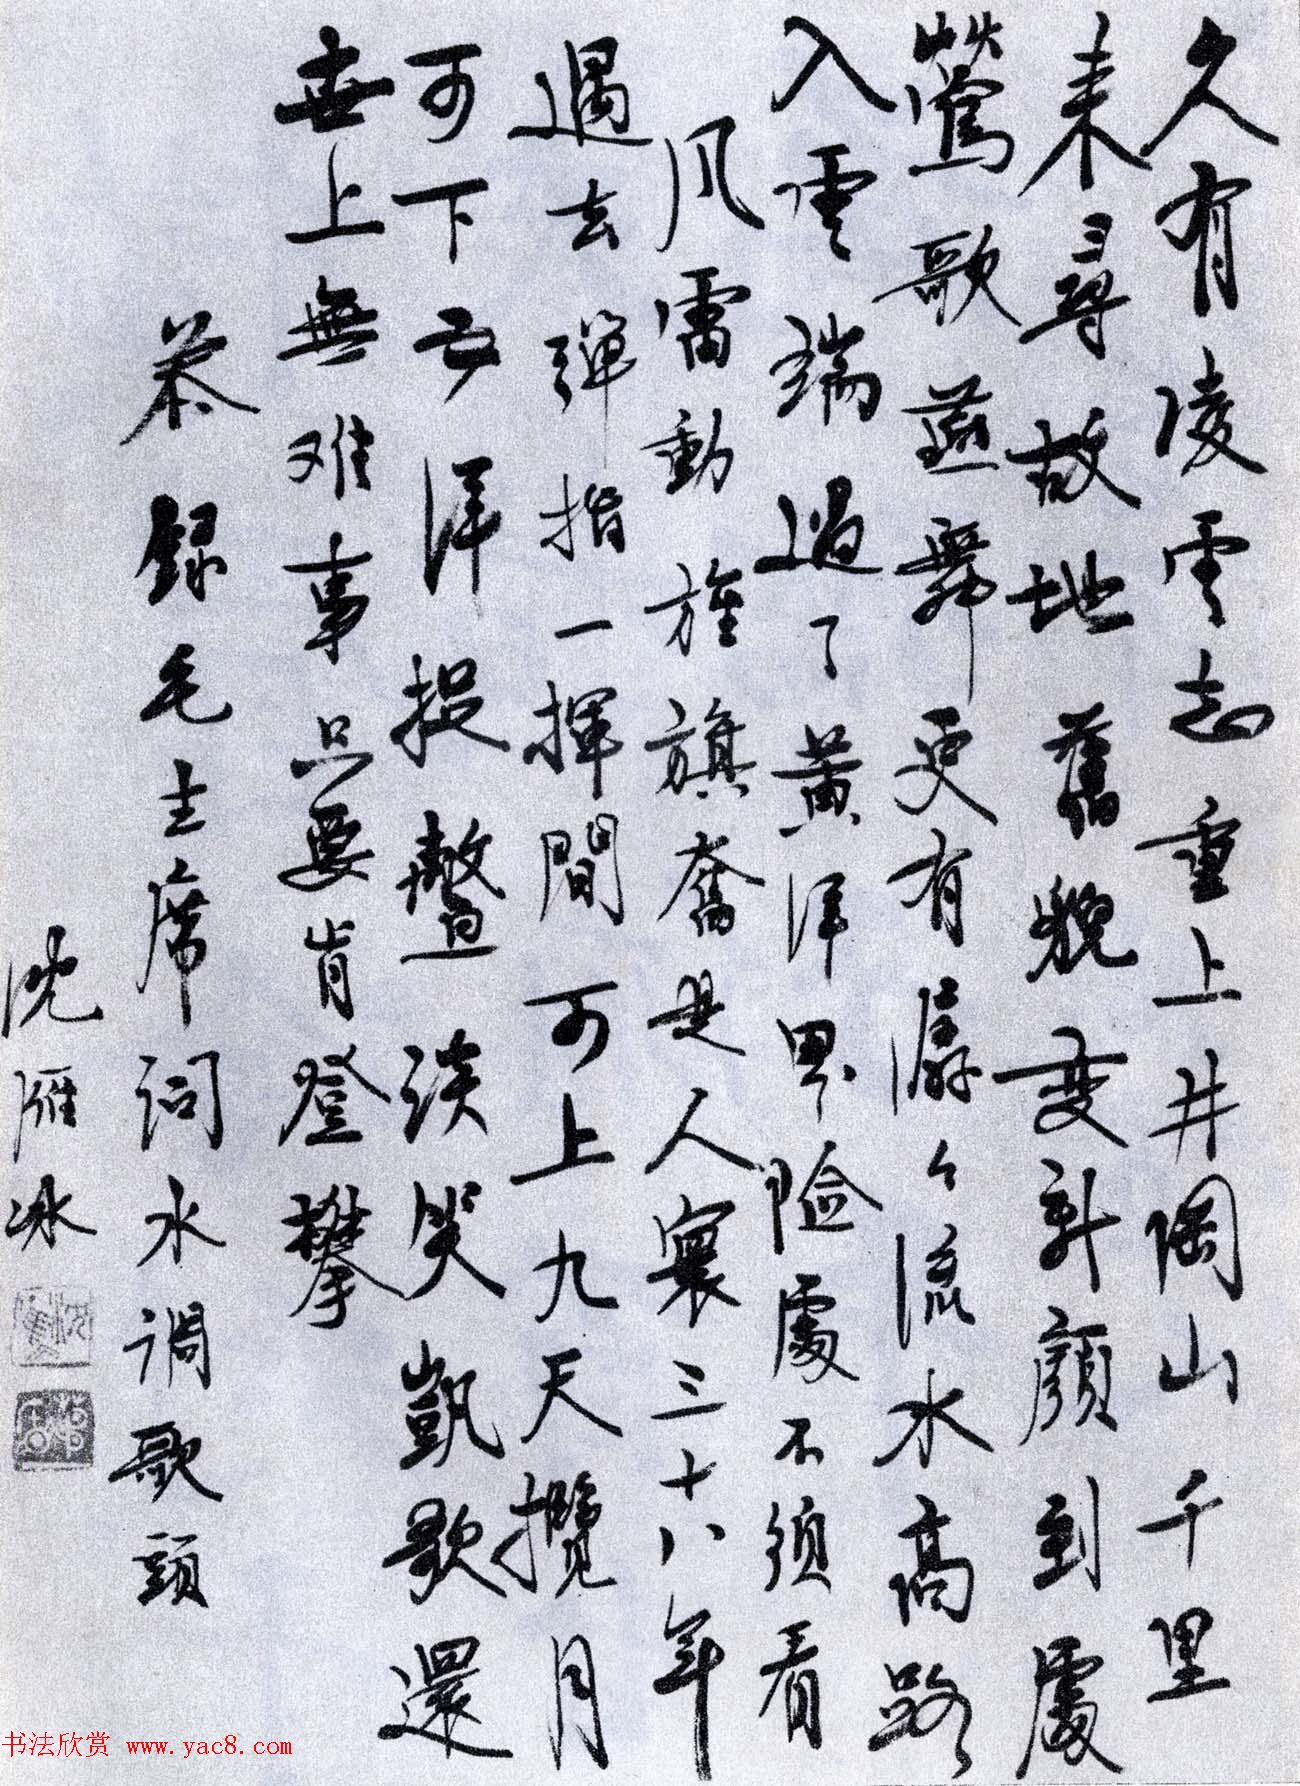 久有凌雲志重上井岡山千里
来尋故地舊貌變新顏到處
鶯歌燕舞更有潺々流水高路
入雲端過了黄洋界险處不須看
风雷動旌旗奮是人寰三十八年
過去彈指一揮間可上九天攬月
可下五洋捉鼈談笑凱歌還
世上無难事只要肯登攀
恭録毛主席词水調歌頭
沈雁冰
书法欣赏 www.yac8.com